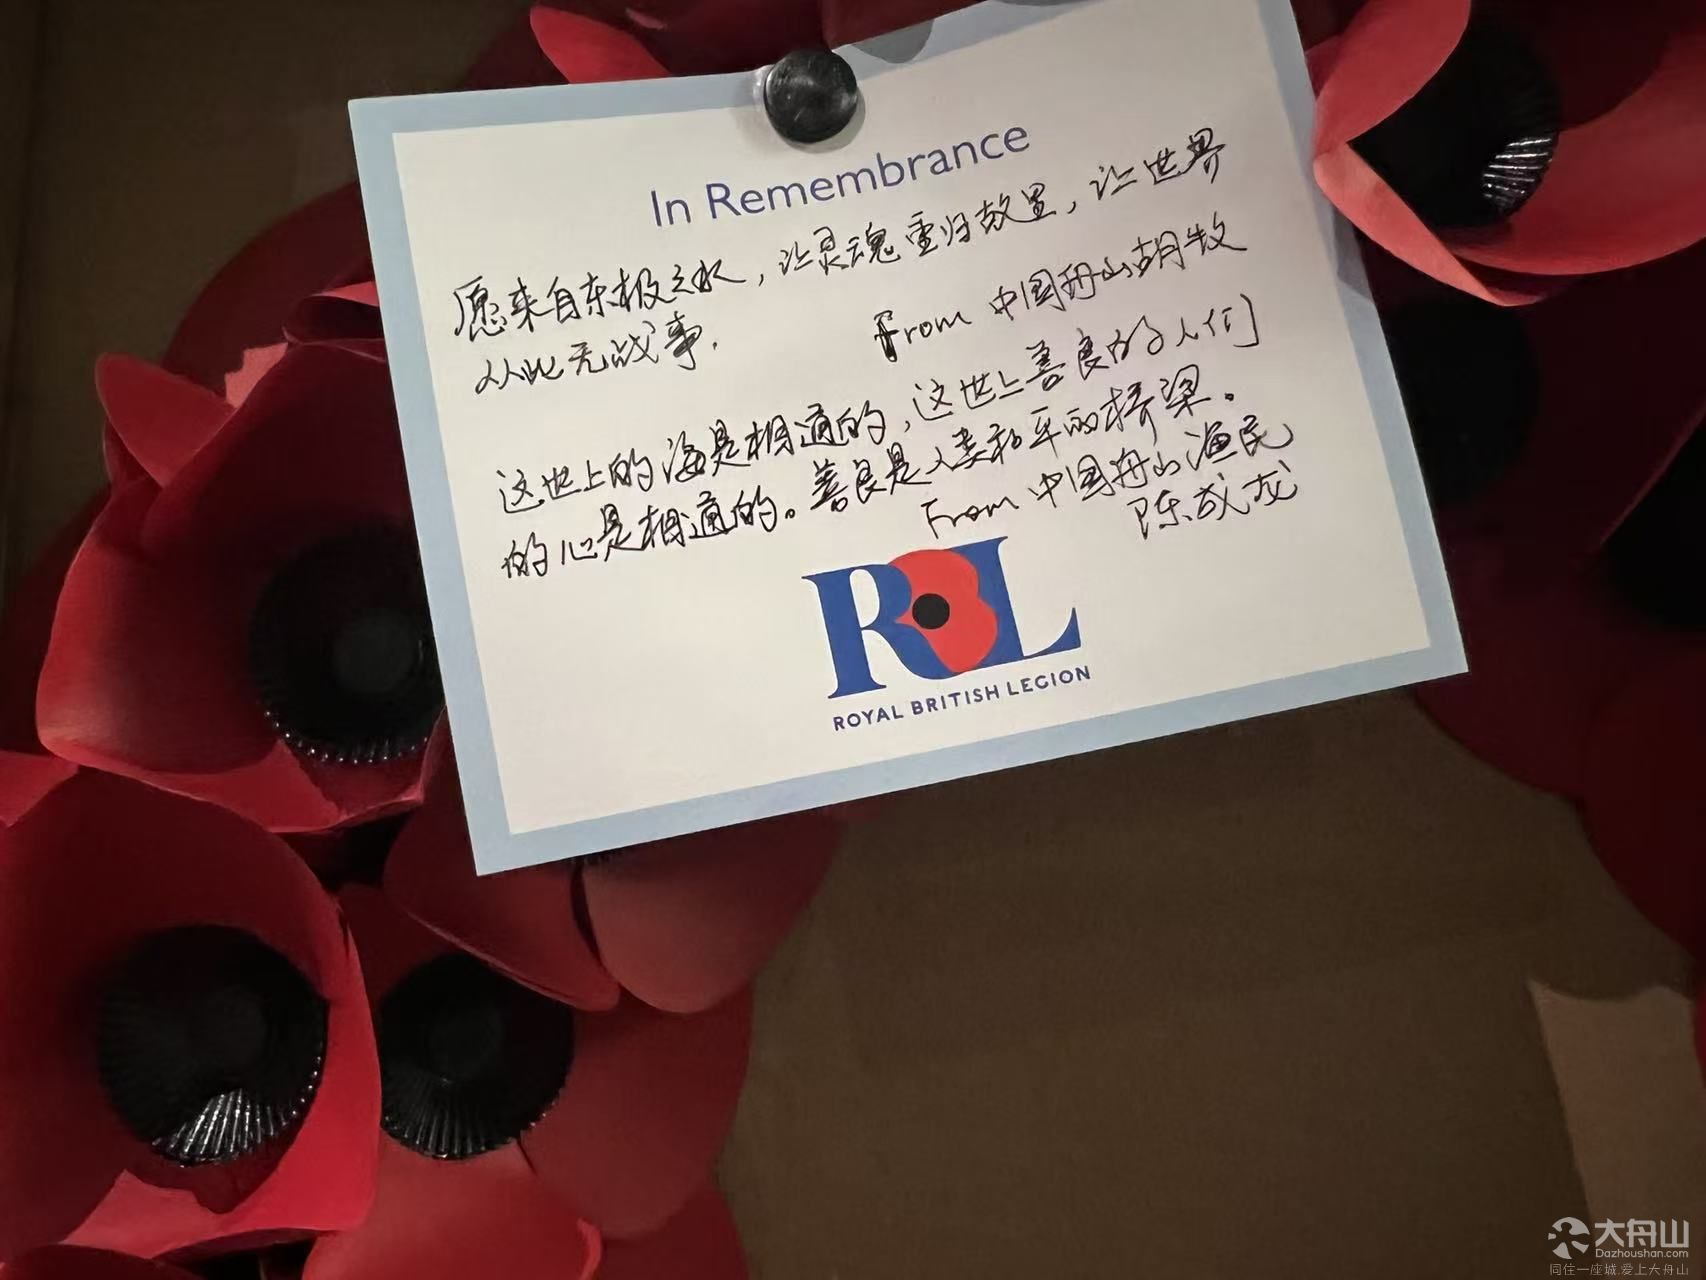 In Remembrance
愿来自东极之水，让灵魂重归故里，让世界
从此无战事.
From 中国舟山胡牧
这世上的海是相通的，这世上善良的人们
的心是相通的。善良是人类和平的桥梁。
From 中国舟山渔民
陈成龙
RBL
ROYAL BRITISH LEGION
大舟山
Dazhoushan.com
同住一座城,爱上大舟山